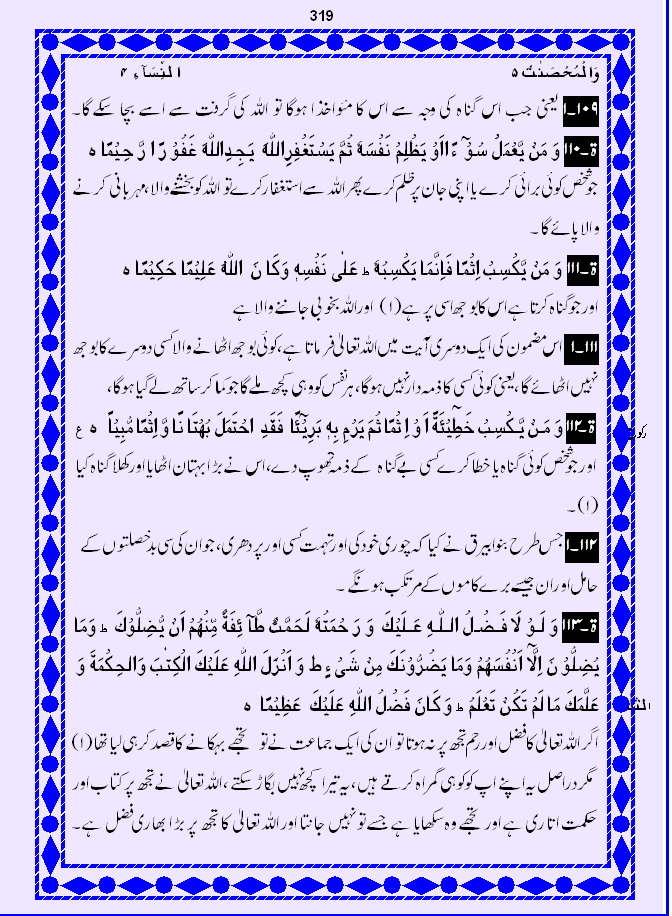 319
وَالْمُحْصَنٰتُ ۵ النِّسَآءِ ۴
۱۰۹۔۱ یعنی جب اس گناہ کی وجہ سے اس کا مئواخذا ہوگا تو اللہ کی گرفت سے اسے بچا سکے گا۔
ۃ۔۱۱۰ وَ مَنْ یَّعْمَلْ سُوْٓ ءً ا اَوْ یَظْلِمْ نَفْسَہٗ ثُمَّ یَسْتَغْفِرِاللّٰہَ یَجِدِاللّٰہَ غَفُوْرًا رَّحِیْمًا ہ
جو شخص کوئی برائی کرے یا اپنی جان پر ظلم کرے پھر اللہ سے استغفار کرے تو اللہ کو بخشنے والا، مہربانی کرنے
والا پائے گا۔
ۃ۔۱۱۱ وَ مَنْ یَّکْسِبْ اِثْمًا فَاِنَّمَا یَکْسِبُہٗ عَلٰی نَفْسِہٖ وَکَا نَ اللّٰہُ عَلِیْمًا حَکِیْمًا ہ
اور جو گناہ کرتا ہے اس کا بوجھ اسی پر ہے (۱) اور اللہ بخوبی جاننے والا ہے
۱۱۱۔۱ اس مضمون کی ایک دوسری آیت میں اللہ تعالیٰ فرماتا ہے، کوئی بوجھ اٹھانے والا کسی دوسرے کا بوجھ
نہیں اٹھائے گا، یعنی کوئی کسی کا ذمہ دار نہیں ہوگا، ہر نفس کو وہی کچھ ملے گا جو کما کر ساتھ لے گیا ہوگا،
ۃ۔۱۱۲ وَ مَنْ یَّکْسِبْ خَطِیْٓئَۃً اَ وْ اِثْمًا ثُمَّ یَرْمِ بِہٖ بَرِیْٓئًا فَقَدِ احْتَمَلَ بُھْتَا نًا وَّاِثْمًا مُّبِیْنًا ہ ع
اور جو شخص کوئی گناہ یا خطا کرے کسی بے گناہ کے ذمہ تھوپ دے، اس نے بڑا بہتان اٹھایا اور کھلا گناہ کیا
(۱)۔
۱۱۲۔۱ جس طرح بنو ابیرق نے کیا کہ چوری خود کی اور تہمت کسی اور پر دھری، جو ان کی سی بد خصلتوں کے
حامل اور ان جیسے برے کاموں کے مرتکب ہونگے۔
ۃ۔۱۱۳ وَ لَوْ لَا فَضْلُ اللّٰہِ عَلَیْکَ وَ رَحْمَتُہٗ لَھَمَّتْ طَّآئِفَۃٌ مِّنْھُمْ اَنْ یُّضِلُّوْکَ ط وَمَا
یُضِلُّوْ نَ اِلَّآ اَنْفُسَھُمْ وَمَا یَضُرُّوْنَکَ مِنْ شَیْ ءٍ ط وَ اَنْزَلَ اللّٰہُ عَلَیْکَ الْکِتٰبَ وَالْحِکْمَۃَ وَ
عَلَّمَکَ مَا لَمْ تَکُنْ تَعْلَمُ ط وَ کَانَ فَضْلُ اللّٰہِ عَلَیْکَ عَظِیْمًا ہ
اگر اللہ تعالیٰ کا فضل اور رحم تجھ پر نہ ہوتا تو ان کی ایک جماعت نے تو تجھے بہکانے کا قصد کر ہی لیا تھا (۱)
مگر دراصل یہ اپنے اپ کو ہی گمراہ کرتے ہیں، یہ تیرا کچھ نہیں بگاڑ سکتے، اللہ تعالیٰ نے تجھ پر کتاب اور
حکمت اتاری ہے اور تجھے وہ سکھایا ہے جسے تو نہیں جانتا اور اللہ تعالیٰ کا تجھ پر بڑا بھاری فضل ہے۔